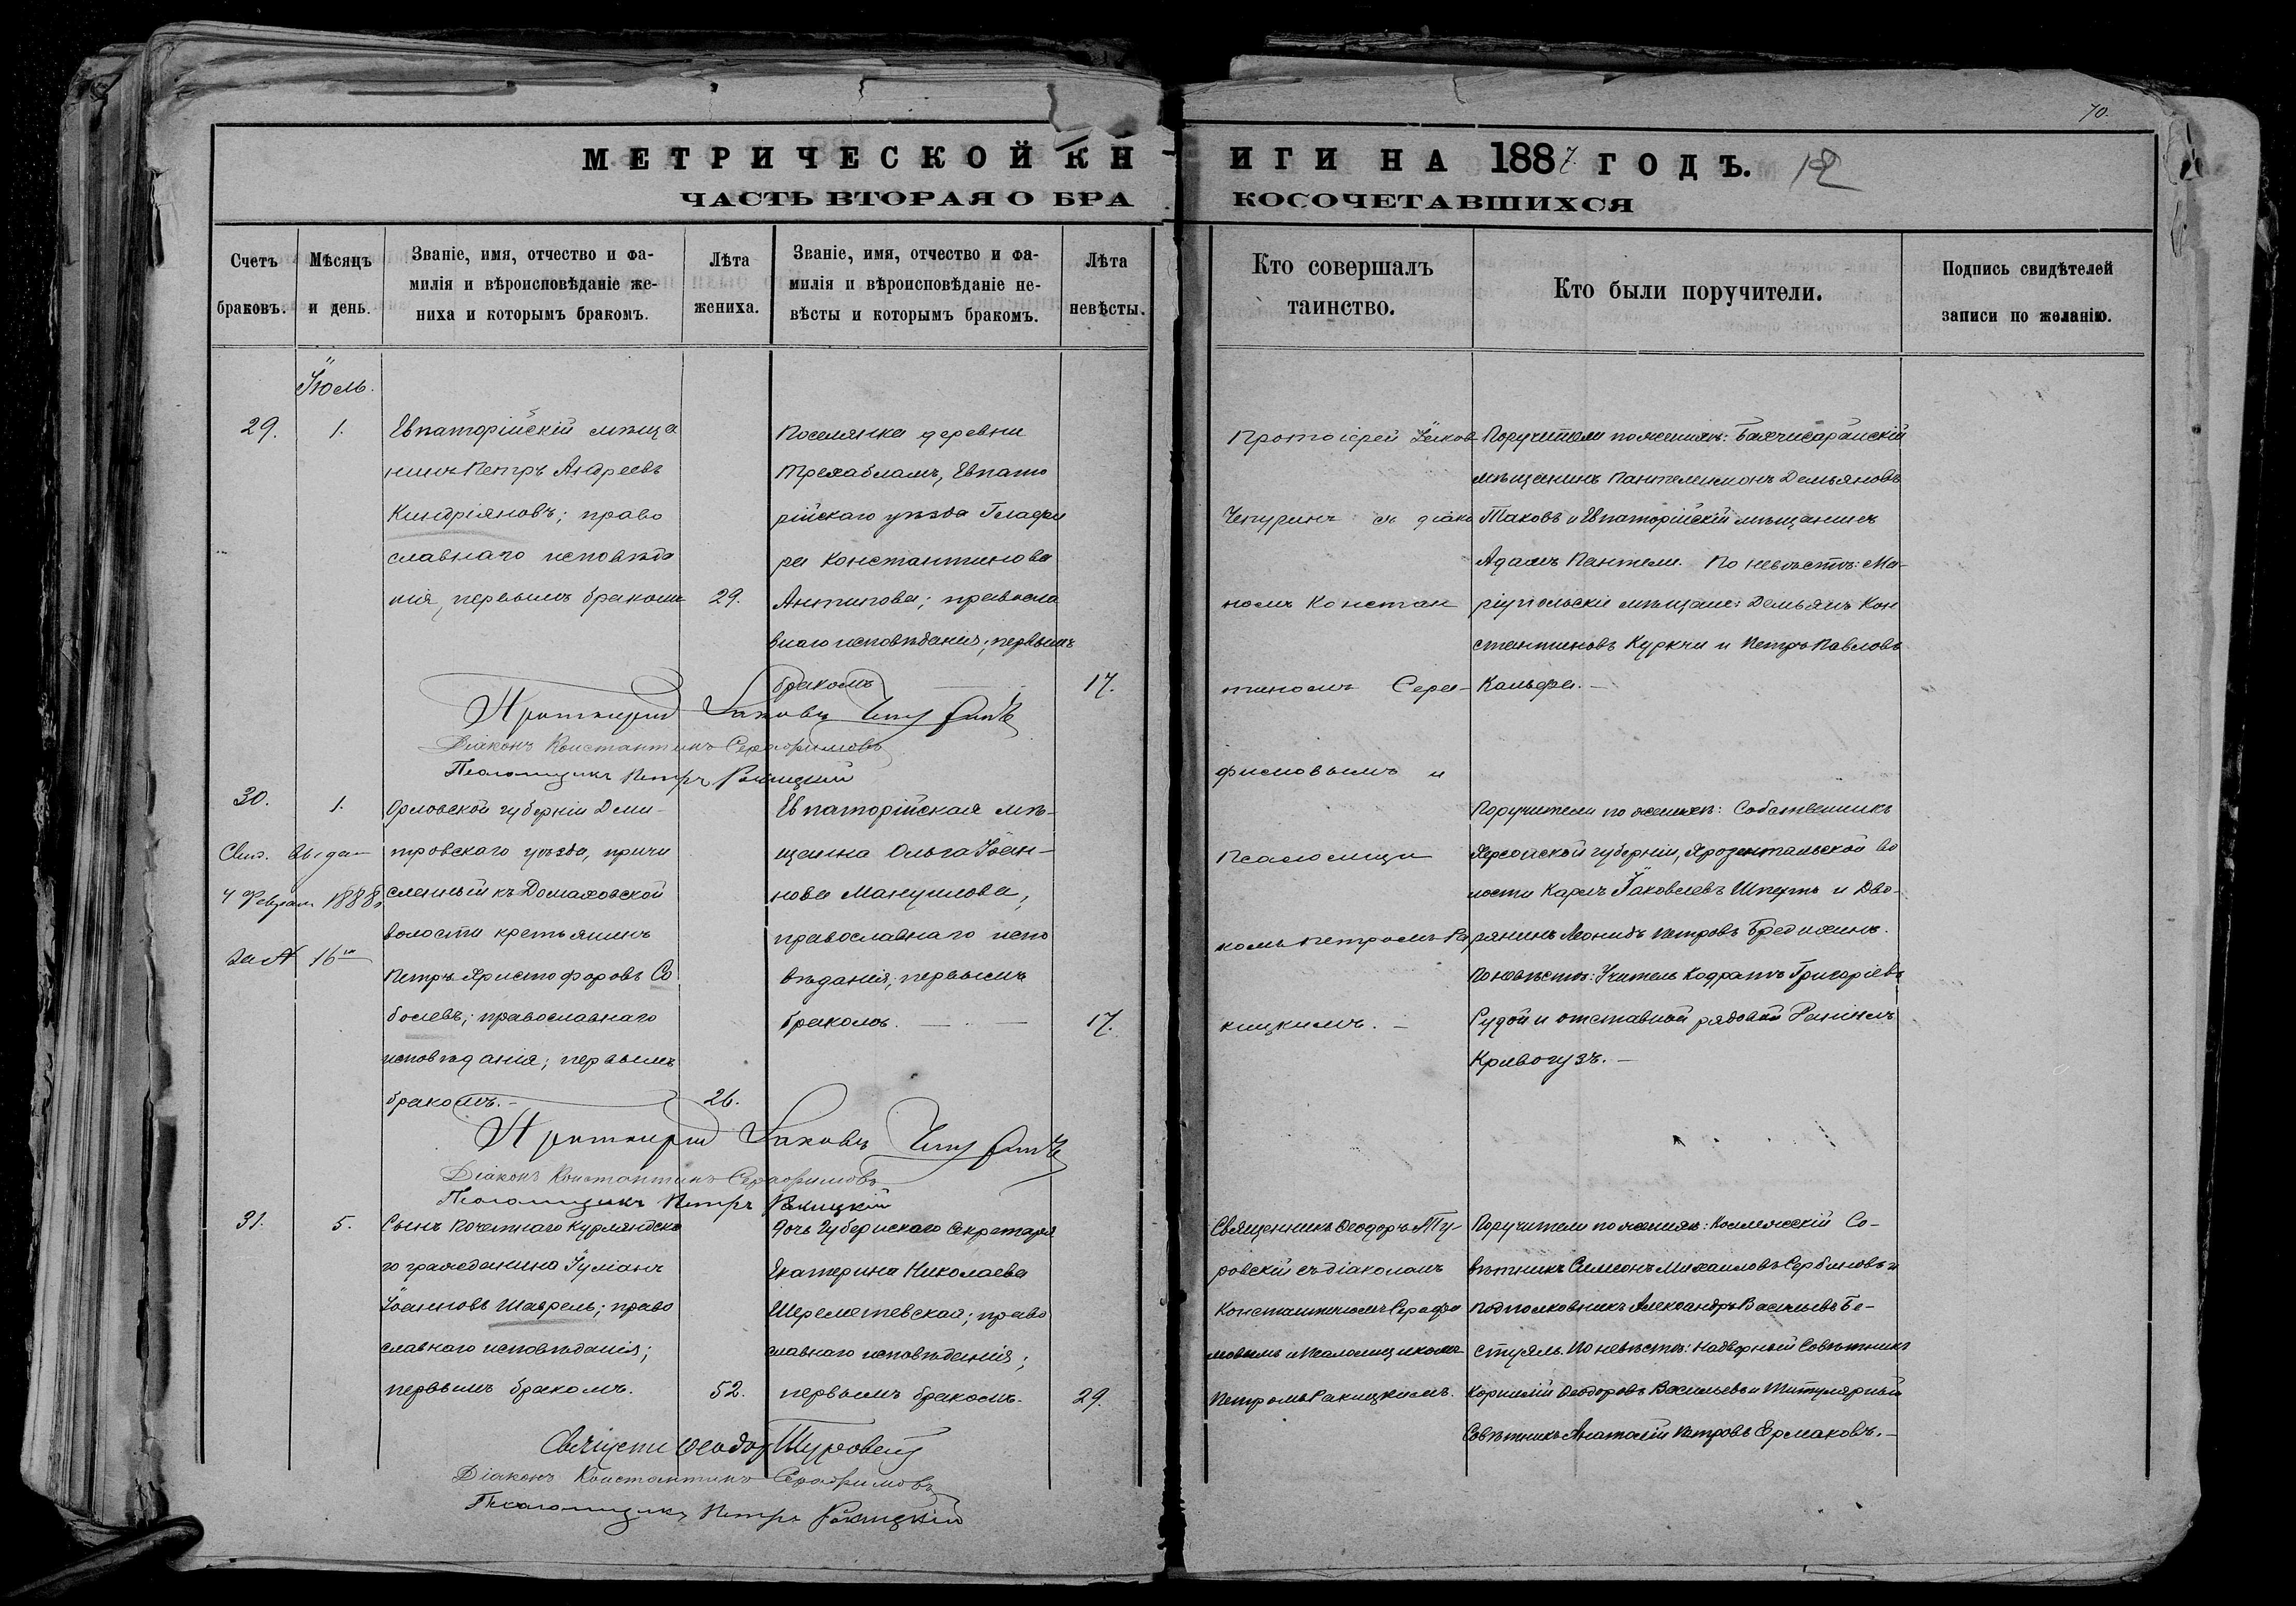 70.
МЕТРИЧЕСКОЙ КН
ИГИ НА 1887 ГОДЪ.
12
ЧАСТЬ ВТОРАЯ О БРА
КОСОЧЕТАВШИХСЯ
Счетъ браковъ.
Мѣсяцъ и день.
Званіе, имя, отчество и фа-
милія и вѣроисповѣданіе же-
ниха и которымъ бракомъ.
Лѣта жениха.
Званіе, имя, отчество и фа-
милія и вѣроисповѣданіе не-
вѣсты и которымъ бракомъ.
Лѣта невѣсты.
Кто совершалъ
таинство.
Кто были поручители.
Подпись свидѣтелей
записи по желанію.
Іюль.
29.
1.
Евпаторійскій мѣща
нинъ Петръ Андреевъ
Киндріяновъ; право
славнаго исповѣда
нія, первымъ бракомъ
29.
Поселянка деревни
Трехабламъ, Евпато
рійскаго уѣзда Глафи
ра Константинова
Антипова; правосла
внаго исповѣданія; первымъ
бракомъ
17.
Протоіерей Іаковъ
Чепуринъ съ діако
номъ Констан
тиномъ Сера-
фимовымъ и
псаломщи
комъ Петромъ Ра
кицкимъ.
Поручители по женихѣ: Бахчисарайскій
мѣщанинъ Пантелимонъ Демьяновъ
Таковъ и Евпаторійскій мѣщанинъ
Адамъ Пантели. По невѣстѣ: Ма-
ріупольскіе мѣщане: Демьянъ Кон
стантиновъ Куркчи и Петръ Павловъ
Кальфа.
Протоіерей Іаковъ Чепуринъ
Діаконъ Константинъ Серафимовъ
Псаломщикъ Петръ Ракицкій
30.
1.
Свид. выдан
4 Февраля 1888 г.
за № 16
Орловской губерніи Дми-
тровскаго уѣзда, причи
сленный къ Домаховской
волости крестьянинъ
Петръ Христофоровъ Со
болевъ; православнаго
исповѣданія; первымъ
бракомъ.
26.
Евпаторійская мѣ-
щанка Ольга Іоан-
нова Мануилова,
православнаго испо
вѣданія, первымъ
бракомъ.
17.
Поручители по женихѣ: Собственникъ
Херсонской губерніи, Ярозентальской во
лости Карлъ Іаковлевъ Шпертъ и Дво-
рянинъ Леонидъ Петровъ Бредихинъ.
По невѣстѣ: Учитель Кодратъ Григоріевъ
Судой и отставной рядовой
Кривогузъ.
Протоіерей Іаковъ Чепуринъ
Діаконъ Константинъ Серафимовъ
Псаломщикъ Петръ Ракицкій
31.
5.
Сынъ почетнаго Курляндска
го гражданина Іуліанъ
Іоанновъ Шаврель; право
славнаго исповѣданія;
первымъ бракомъ.
52.
Дочь Губернскаго Секретаря
Екатерина Николаева
Шереметевская; право
славнаго исповѣданія;
первымъ бракомъ.
29.
Священникъ Ѳеодоръ Ту-
ровскій съ діакономъ
Константиномъ Серафи
мовымъ и Псаломщикомъ
Петромъ Ракицкимъ.
Поручители по женихѣ: Коллежскій Со-
вѣтникъ Симеонъ Михаиловъ Сербиновъ и
Подполковникъ Александръ Васильевъ Бе-
стуяль. По невѣстѣ: Надворный Совѣтникъ
Корнилій Ѳеодоровъ Васильевъ и Титулярный
Совѣтникъ Анатолій Петровъ Ермаковъ.
Священ Ѳеодоръ Туровскій
Діаконъ Константинъ Серафимовъ
Псаломщикъ Петръ Ракицкій